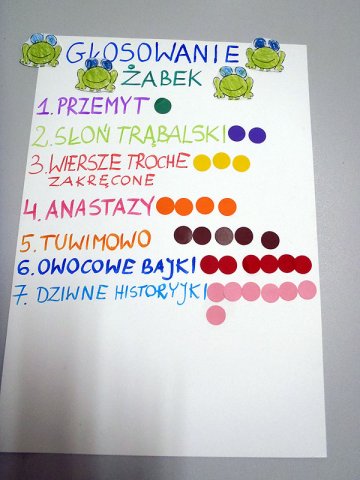 GŁOSOWANIE
ŻABEK
1. PRZEMYT
2. SŁOŃ TRĄBALSKI
3. WIERSZE TROCHE
ZAKRĘCONE
4. ANASTAZY
5. TUWIMOWO
6. OWOCOWE BAJKI
7. DZIWNE HISTORYJKI